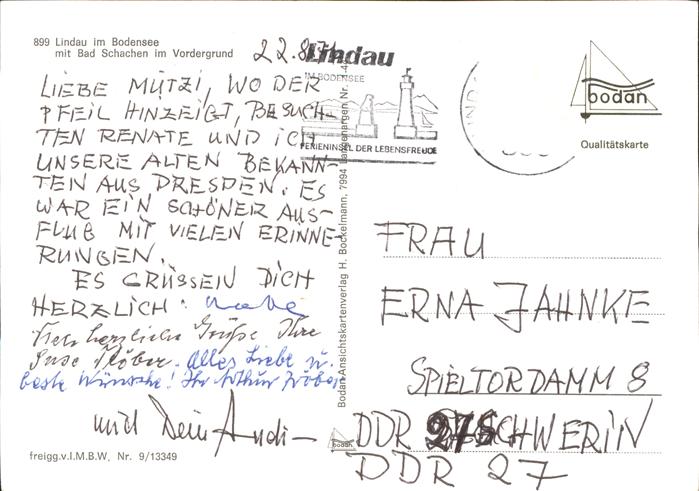 899 Lindau im Bodensee
mit Bad Schachen im Vordergrund
22.8.
LIEBE MUTZI, WO DER
PFEIL HINZEIGT, BESUCH-
TEN RENATE UND ICH
UNSERE ALTEN BEKANN-
TEN AUS DRESDEN. ES
WAR EIN SCHÖNER AUS-
FLUG MIT VIELEN ERINNE-
RUNGEN.
ES GRÜSSEN DICH
HERZLICH:
herzliche Grüße Ihre
Alles Liebe u.
beste Wünsche! Ihr Arthur
und Dein Andi
freigg.v.I.M.B.W. Nr. 9/13349
Lindau
IM BODENSEE
FERIENINSEL DER LEBENSFREUDE
Bodan-Ansichtskartenverlag H. Bockelmann, 7994 Langenargen Nr.
bodan
bodan
Qualitätskarte
FRAU
ERNA JAHNKE
SPIELTORDAMM 8
DDR 27 SCHWERIN
DDR 27